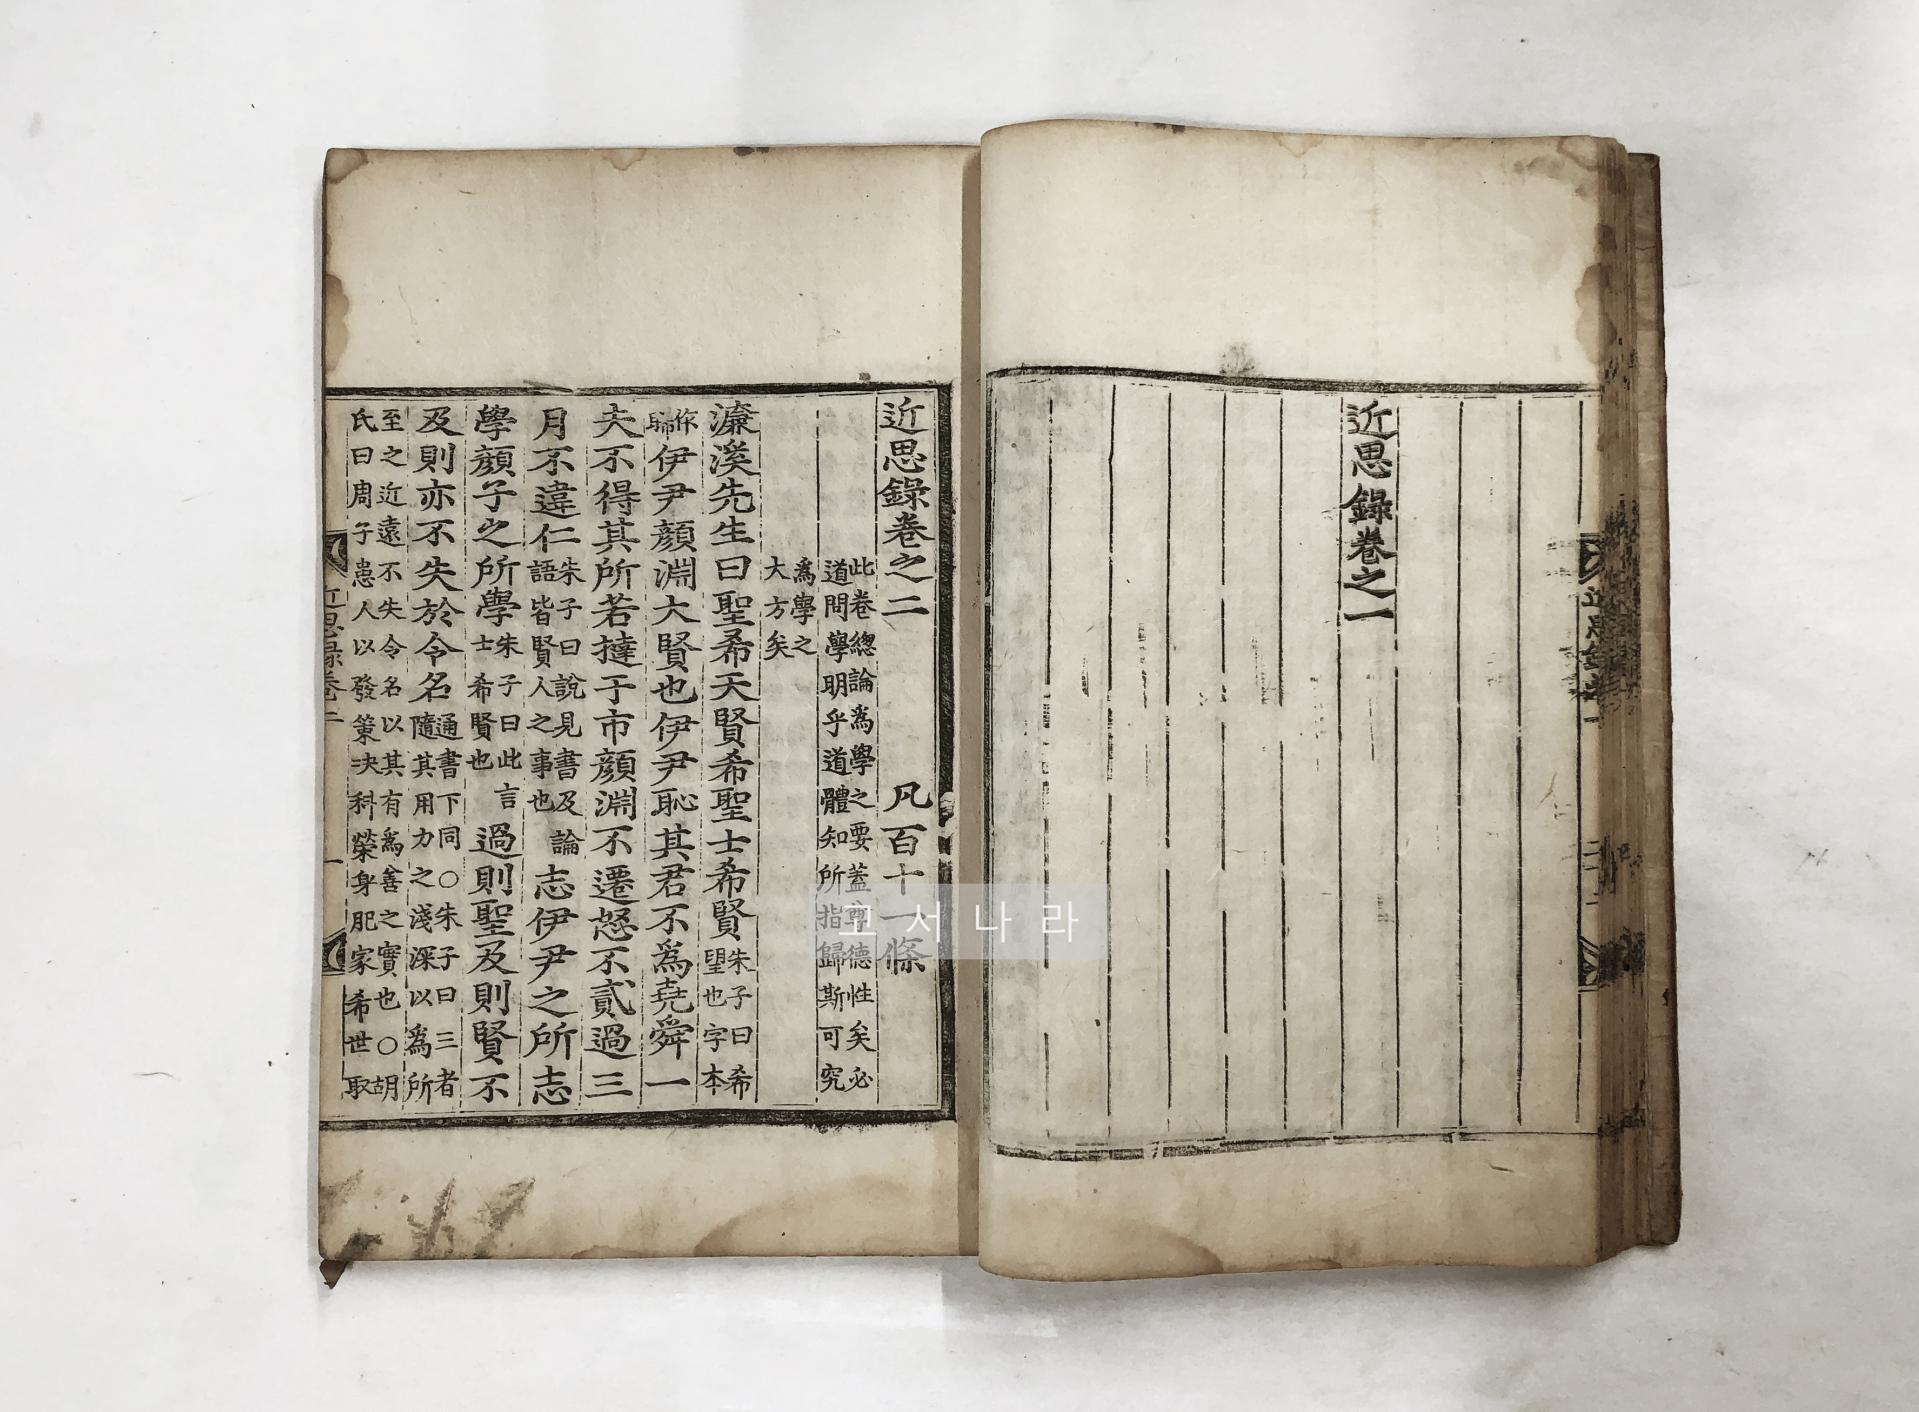 近思錄卷之一
近思錄卷之二 凡百十一條
此卷總論為學之要蓋尊德性矣必
道問學明乎道體知所指歸斯可究
為學之
大方矣
濂溪先生曰聖希天賢希聖士希賢
朱子曰希
望也字本
作
睎
伊尹顏淵大賢也伊尹恥其君不為堯舜一
夫不得其所若撻于市顏淵不遷怒不貳過三
月不違仁
朱子曰說見書及論
語皆賢人之事也
志伊尹之所志
學顏子之所學
朱子曰此言
士希賢也
過則聖及則賢不
及則亦不失於令名
通書下同○朱子曰三者
隨其用力之淺深以為所
至之近遠不失令名以其有為善之實也○胡
氏曰周子患人以發策決科榮身肥家希世取
近思錄卷二
一
고서나라